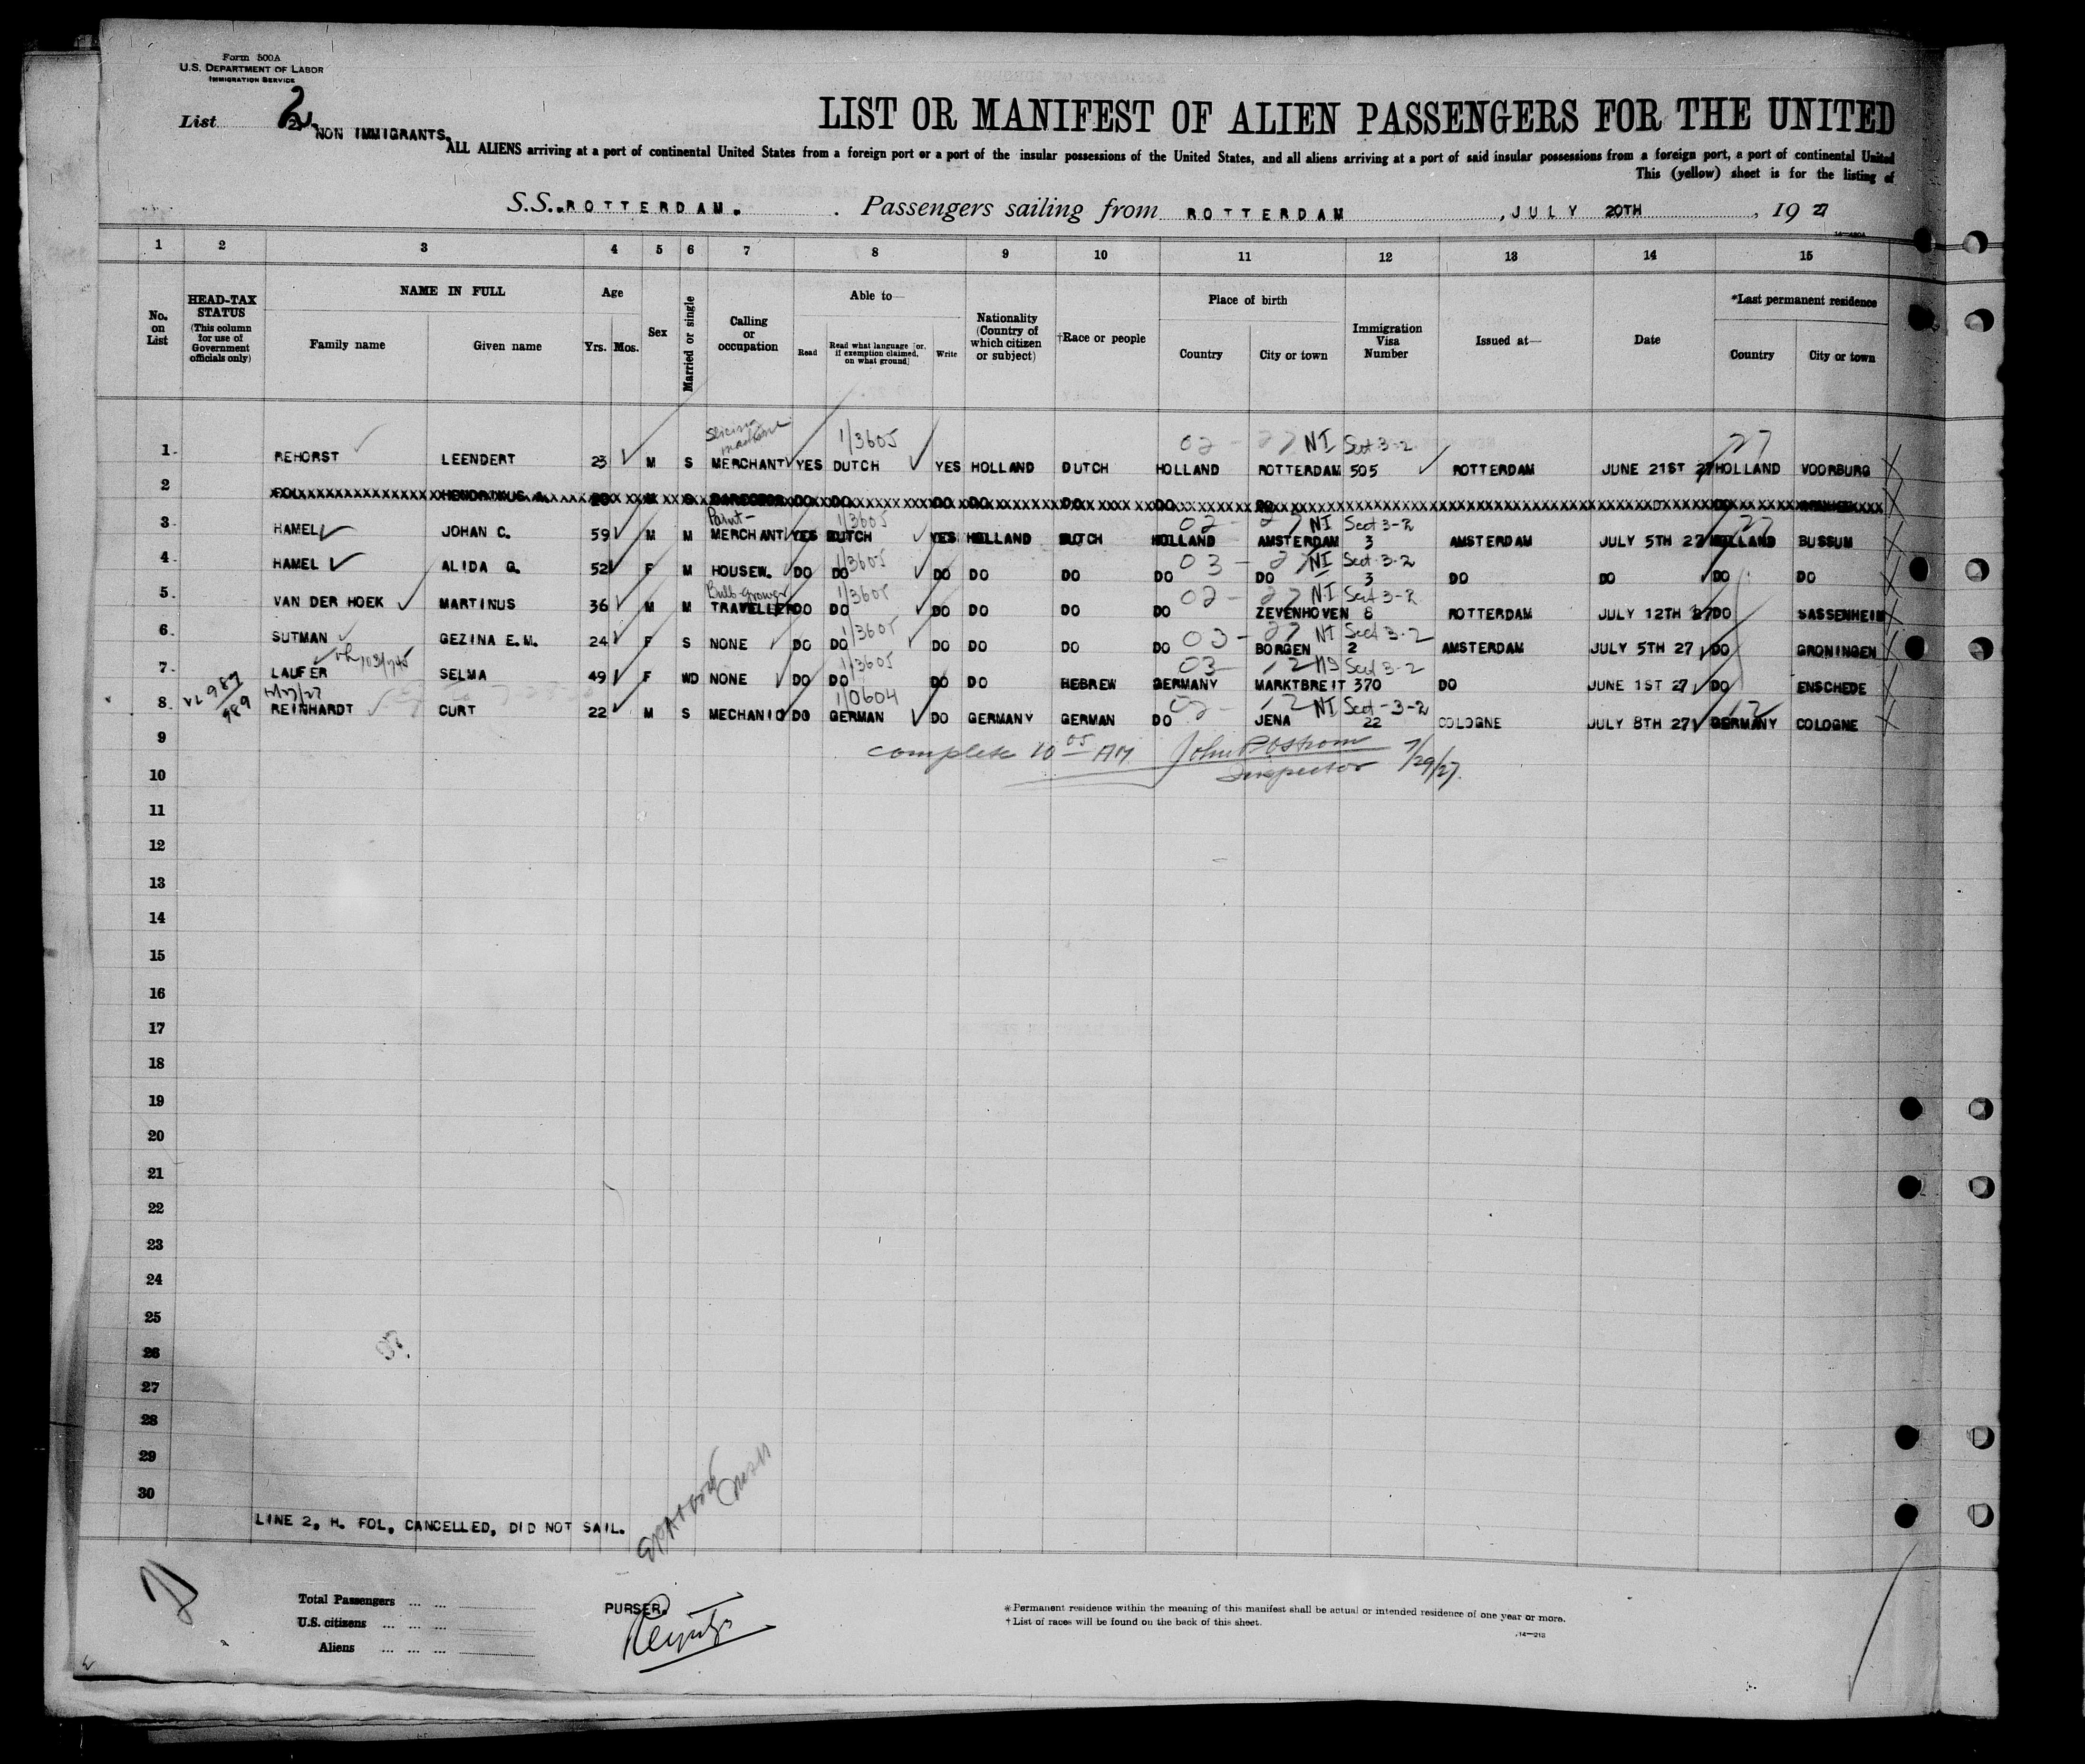 Form 500A
U.S. DEPARTMENT OF LABOR
IMMIGRATION SERVICE
List 2
NON IMMIGRANTS.
LIST OR MANIFEST OF ALIEN PASSENGERS FOR THE UNITED
ALL ALIENS arriving at a port of continental United States from a foreign port or a port of the insular possessions of the United States, and all aliens arriving at a port of said insular possessions from a foreign port, a port of continental United
This (yellow) sheet is for the listing of
S.S. ROTTERDAM. Passengers sailing from ROTTERDAM, JULY 20TH, 1927
14—480A
1 2 3 4 5 6 7 8 9 10 11 12 13 14 15
No. on List
HEAD-TAX STATUS (This column for use of Government officials only)
NAME IN FULL
Family name Given name
Age
Yrs. Mos.
Sex
Married or single
Calling or occupation
Able to—
Read Read what language [or, if exemption claimed, on what ground] Write
Nationality (Country of which citizen or subject)
†Race or people
Place of birth
Country City or town
Immigration Visa Number
Issued at—
Date
*Last permanent residence
Country City or town
1/3605 02 - 27 NI Sect 3-2 27
1 REHORST LEENDERT 23 M S MERCHANT YES DUTCH YES HOLLAND DUTCH HOLLAND ROTTERDAM 505 ROTTERDAM JUNE 21ST 27 HOLLAND VOORBURG
2 FOL HENDRINUS
Paint- 1/3605 02 - 27 NI Sect 3-2 27
3 HAMEL JOHAN C. 59 M M MERCHANT YES DUTCH YES HOLLAND DUTCH HOLLAND AMSTERDAM 3 AMSTERDAM JULY 5TH 27 HOLLAND BUSSUM
1/3605 03 - 27 NI Sect 3-2
4 HAMEL ALIDA G. 52 F M HOUSEW. DO DO DO DO DO DO DO 3 DO DO DO DO
Bulb-grower 1/3605 02 - 27 NI Sect 3-2
5 VAN DER HOEK MARTINUS 36 M M TRAVELLER DO DO DO DO DO DO ZEVENHOVEN 8 ROTTERDAM JULY 12TH 27 DO SASSENHEIM
1/3605 03 - 27 NI Sect 3-2
6 SUTMAN GEZINA E.M. 24 F S NONE DO DO DO DO DO DO BORGEN 2 AMSTERDAM JULY 5TH 27 DO GRONINGEN
1/3605 03 - 12 Sect 3-2
7 LAUFER SELMA 49 F WD NONE DO DO DO DO HEBREW GERMANY MARKTBREIT 370 DO JUNE 1ST 27 DO ENSCHEDE
1/0604 02 - 12 NI Sect-3-2 12
8 REINHARDT CURT 22 M S MECHANIC DO GERMAN DO GERMANY GERMAN DO JENA 22 COLOGNE JULY 8TH 27 GERMANY COLOGNE
9
complete 10 05 AM John P. Ostrom
Inspector 7/29/27.
10
11
12
13
14
15
16
17
18
19
20
21
22
23
24
25
26
27
28
29
30
LINE 2, H. FOL, CANCELLED, DID NOT SAIL.
Total Passengers
U.S. citizens
Aliens
PURSER.
*Permanent residence within the meaning of this manifest shall be actual or intended residence of one year or more.
†List of races will be found on the back of this sheet.
14—213